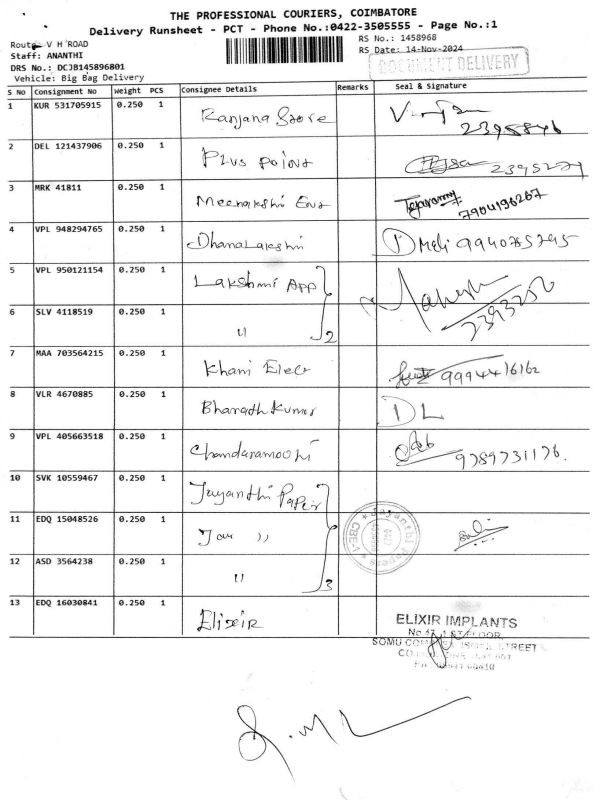 THE PROFESSIONAL COURIERS, COIMBATORE
Delivery Runsheet - PCT - Phone No.:0422-3505555 - Page No.:1
Route: V H ROAD
Staff: ANANTHI
DRS No.: DCJB145896801
Vehicle: Big Bag Delivery
RS No.: 1458968
RS Date: 14-Nov-2024
DOCUMENT DELIVERY
S No Consignment No Weight PCS Consignee Details Remarks Seal & Signature
1 KUR 531705915 0.250 1 Ranjana Store 2395846
2 DEL 121437906 0.250 1 Plus Point
3 MRK 41811 0.250 1 Meenakshi Ent 7904196267
4 VPL 948294765 0.250 1 Dhanalakshmi
5 VPL 950121154 0.250 1 Lakshmi App Mahesh
6 SLV 4118519 0.250 1 " 2
7 MAA 703564215 0.250 1 Khani Elect 9994416162
8 VLR 4670885 0.250 1 Bharath Kumar DL
9 VPL 405663518 0.250 1 9789731176.
10 SVK 10559467 0.250 1 Jayanthi Paper
11 EDQ 15048526 0.250 1 "
12 ASD 3564238 0.250 1 " 3
Jayanthi Papers
CBE-1
13 EDQ 16030841 0.250 1 Elixir
ELIXIR IMPLANTS